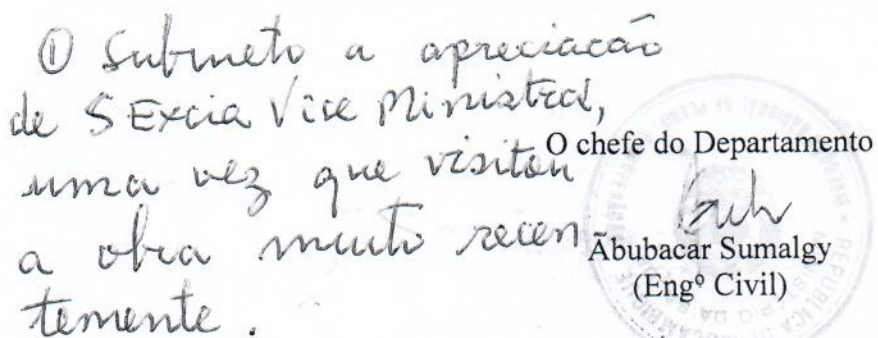 ① Submeto a apreciacão
de S Excia Vice Ministra,
uma vez que visitou
a obra muito recen
temente.
O chefe do Departamento
Abubacar Sumalgy
(Engº Civil)
REPÚBLICA DE MOÇAMBIQUE